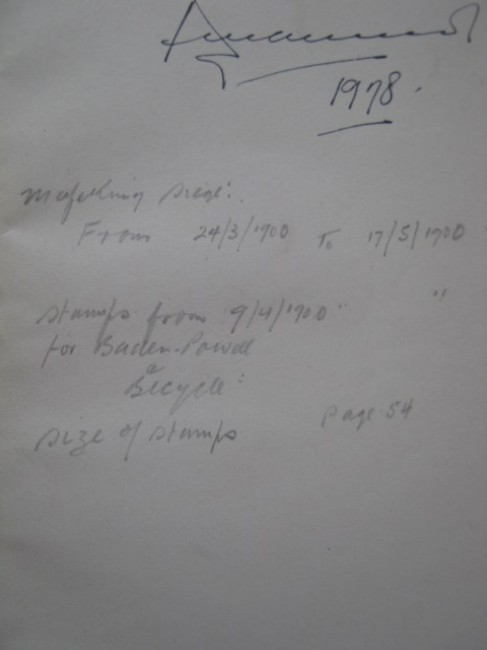 1978.
Mafeking Siege:
From 24/3/1900 To 17/5/1900
Stamps from 9/4/1900 " "
for Baden-Powell
&
Bicycle:
size of stamps Page 54